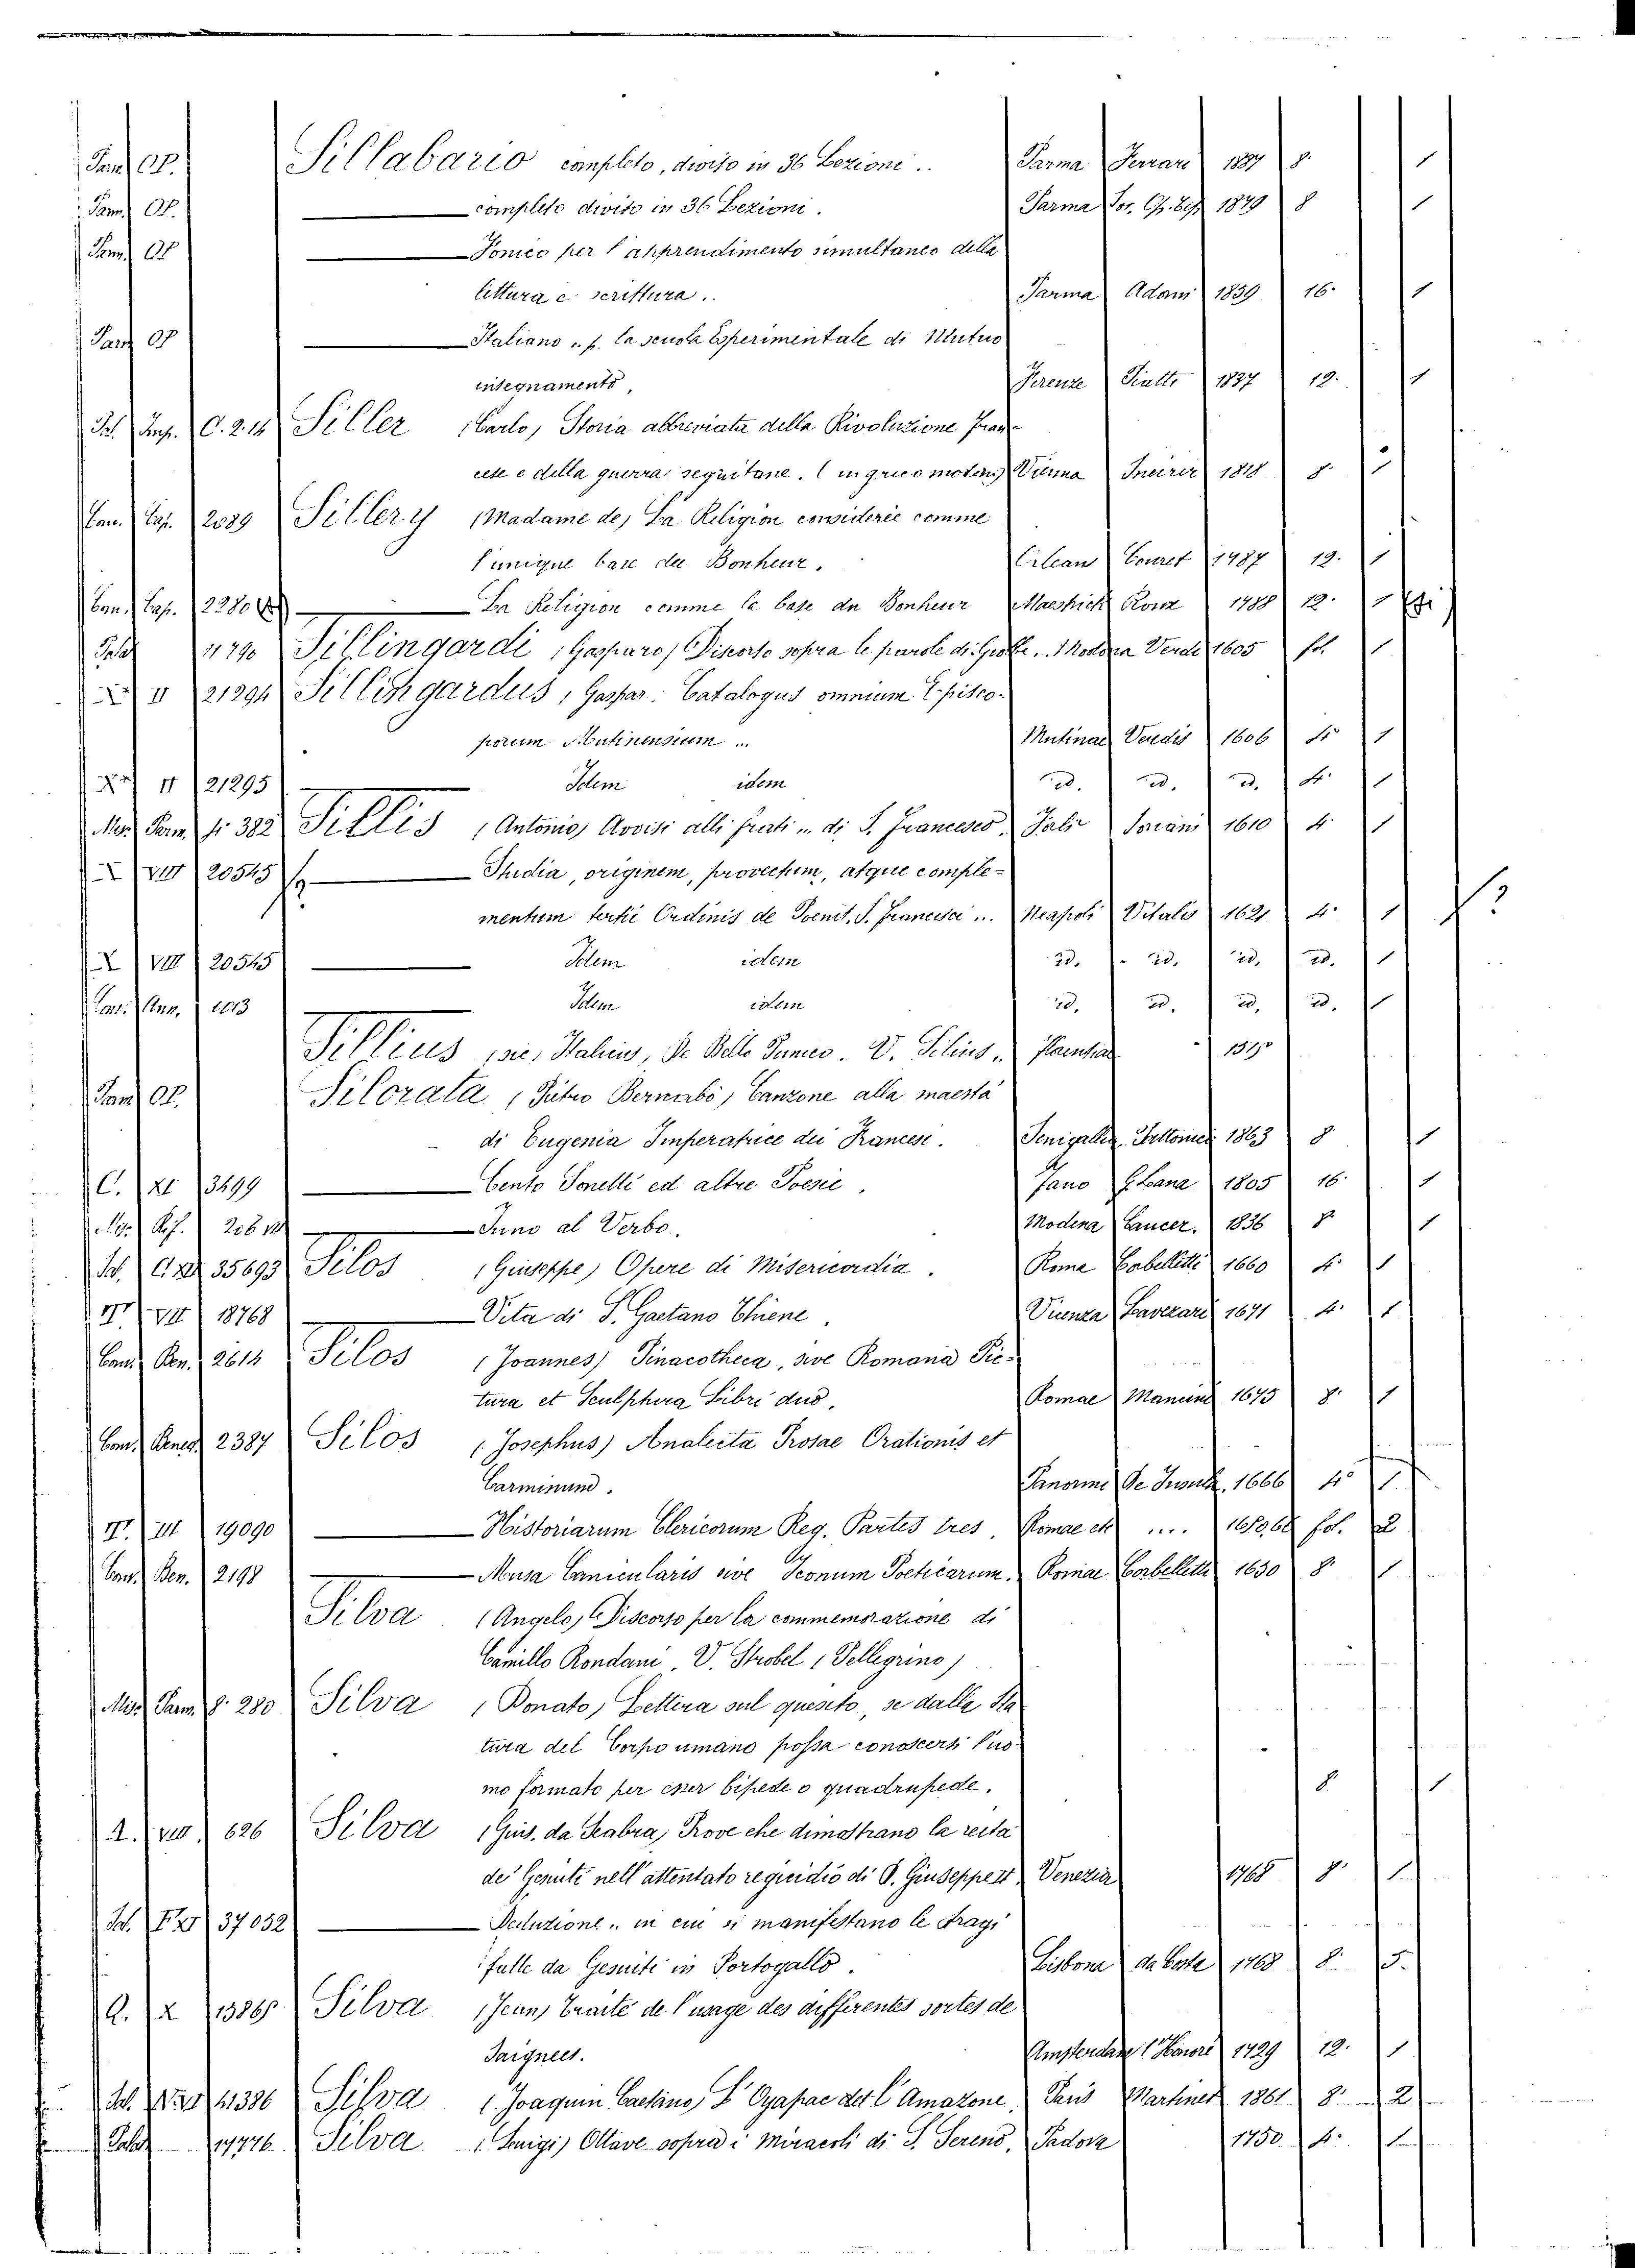 Parm. OP. Sillabario completo, diviso in 36 Lezioni .. Parma Ferrari 1887 8. 1
Parm. OP. completo diviso in 36 Lezioni. Parma 1879 8 1
Parm. OP Tonico per l'apprendimento simultaneo della
lettura e scrittura .. Parma Adorni 1859 16. 1
Parm OP Italiano .. p. la scuola Esperimentale di Mutuo
insegnamento, Firenze Piatti 1827 12. 1
Sal. C. 2. 14 Siller (Carlo) Storia abbreviata della Rivoluzione Fran-
cese e della guerra seguitane. (in greco moderno) Vienna 1818 8. 1
Can. Cap. 2089 Sillery (Madame de) La Religion considerée comme
l'unique base du Bonheur. Orleans Couret 1787 12. 1
Can. Cap. 22806 La Religion comme la base du Bonheur Maestrich Roux 1788 12. 1
Palat 11790 Sillingardi (Gasparo) Discorso sopra le parole di Giobbe .. Modona Verdi 1605 fol. 1
II 21294 Sillingardus, Gaspar. Catalogus omnium Episco-
porum Mutinensium ... Mutinae Verdis 1606 4° 1
II 21295 Idem idem id. id. id. 4. 1
Misc. Parm. fr. 382 Sillis (Antonio) Avvisi alli frati .. di S. Francesco, 1610 4. 1
X VIII 20545 Studia, originem, provectum, atque comple-
mentum tertii Ordinis de Poenit. S. Francisci ... Neapoli Vitalis 1621 4. 1 ?
X VIII 20545 Idem idem id. id. id. id. 1
Can. Ann. 1013 Idem idem id. id. id. id. 1
Sillius, sic, Italicus, De Bello Punico. V. Silius, 1515°
Parm OP. Silorata (Pietro Bernabò) Canzone alla maestà
di Eugenia Imperatrice dei Francesi. Senigallia 1863 8 1
C. XI 13499 Cento Sonetti ed altre Poesie. Fano F. Lana 1805 16. 1
Misc. Rif. 206 Inno al Verbo .. Modena Cancer. 1836 8 1
Sal. 35693 Silos (Giuseppe) Opere di Misericordia. Roma Corbelletti 1660 4. 1
IV. VII 18768 Vita di S. Gaetano Thiene. Vicenza Lavezari 1671 4. 1
Can. Ben. 2614 Silos (Joannes) Pinacotheca, sive Romana Pic-
tura et Sculptura Libri duo. Romae Mancini 1673 8. 1
Can. Bened. 2387 Silos (Josephus) Analecta Prosae Orationis et
Carminum. Panormi De Insula. 1666 4° 1
IV. III 19090 Historiarum Clericorum Reg. Partes tres. Romae et .... 1650,66 fol. 2
Can. Ben. 2198 Musa Canicularis sive Iconum Poeticarum. Romae Corbelletti 1650 8. 1
Silva (Angelo) Discorso per la commemorazione di
Camillo Rondani. V. Strobel (Pellegrino)
Misc. Parm. 8. 280 Silva (Donato) Lettera sul quesito, se dalla Sta-
tura del Corpo umano possa conoscersi l'uo-
mo formato per esser bipede o quadrupede. 8. 1
A. VIII. 626 Silva (Gius. da Seabra) Prove che dimostrano la reità
de' Gesuiti nell'attentato regicidio di D. Giuseppe II Venezia 1768 8. 1
Sal. F XI 37052 Deduzione .. in cui si manifestano le stragi
fatte da Gesuiti in Portogallo. Lisbona da Costa 1768 8. 5.
Q. X 13865 Silva (Jean) Traité de l'usage des différentes sortes de
Saignées. Amsterdam l'Honoré 1729 12. 1
Sal. 41386 Silva (Joaquin Caetano) L'Oyapac det l'Amazone, Paris Martinet 1861 8. 2
Palat 17776 Silva (Luigi) Ottave sopra i Miracoli di S. Sereno, Padova 1750. 4. 1